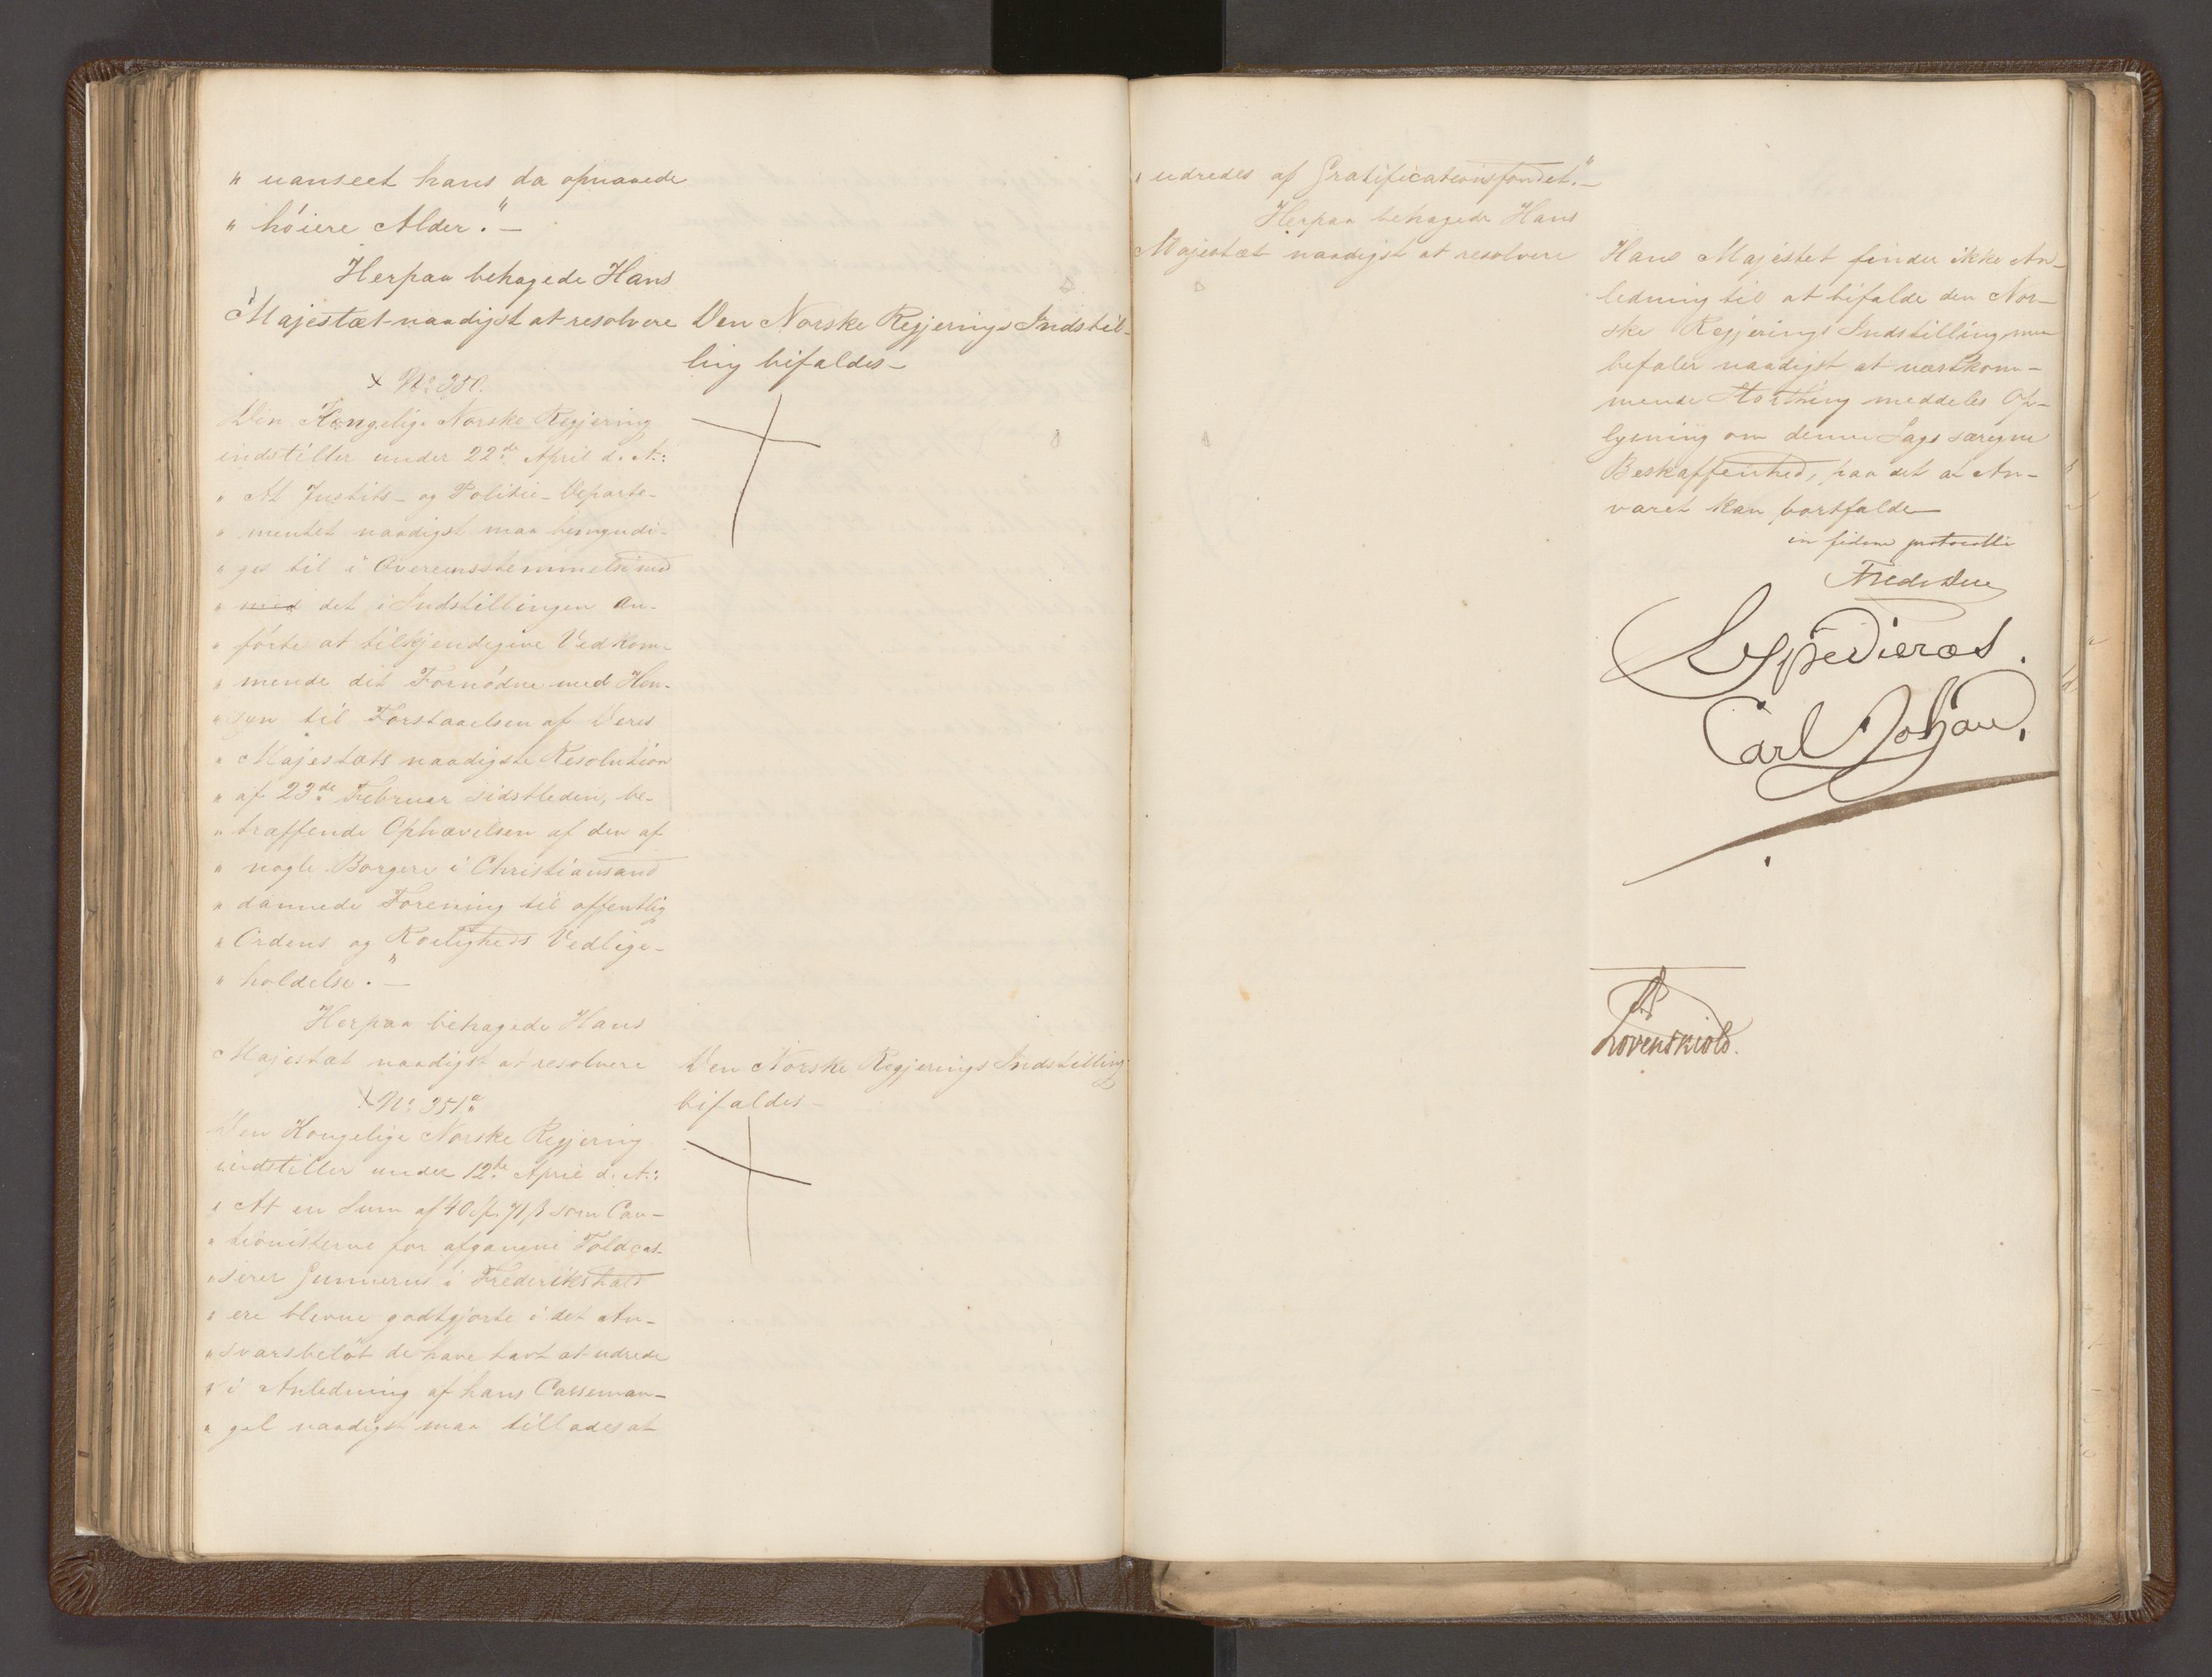 " uanseet hans da opnaaede
" höiere Alder."—
Herpaa behagede Hans
Majestæt naadigst at resolvere
Den Norske Regjerings Indstil-
ling bifaldes—
× No 350.
Den Kongelige Norske Regjering
indstiller under 22de April d. A.:
" At Justits- og Politie-Departe-
" mentet naadigst maa bemyndi-
" ges til i Overeensstemmelse med
" med det i Indstillingen an-
" förte at tilkjendegive Vedkom-
" mende det Fornödne med Hen-
" syn til Forstaaelsen af Deres
" Majestæts naadigste Resolution
" af 23de Februar sidstleden, be-
" træffende Ophævelsen af den af
" nogle Borgere i Christiansand
" dannede Forening til offentlig
" Ordens og Roeligheds Vedlige-
" holdelse."—
Herpaa behagede Hans
Majestæt naadigst at resolvere
Den Norske Regjerings Indstilling
bifaldes—
× No 351.
Den Kongelige Norske Regjering
indstiller under 12te April d. A.:
" At en Sum af 40 71 ß som Cau-
" tionisterne for afgangne Toldcas-
" serer Gunnerus i Frederikshald
" ere blevne godtgjorte i det An-
" svarsbelöb de have havt at udrede
" i Anledning af hans Casseman-
" gel naadigst maa tillades at
" udredes af Gratificationsfondet."—
Herpaa behagede Hans
Majestæt naadigst at resolvere
Hans Majestet finder ikke An-
ledning til at bifalde den Nor-
ske Regjerings Indstilling men
befaler naadigst at næstkom-
mende Storthing meddeles Op-
lysning om denne Sags særegne
Beskaffenhed, paa det at An-
varet kan bortfalde—
in fidem protocolli
Fredr. Due
Expederas.
Carl Johan.
Løvenskiold.